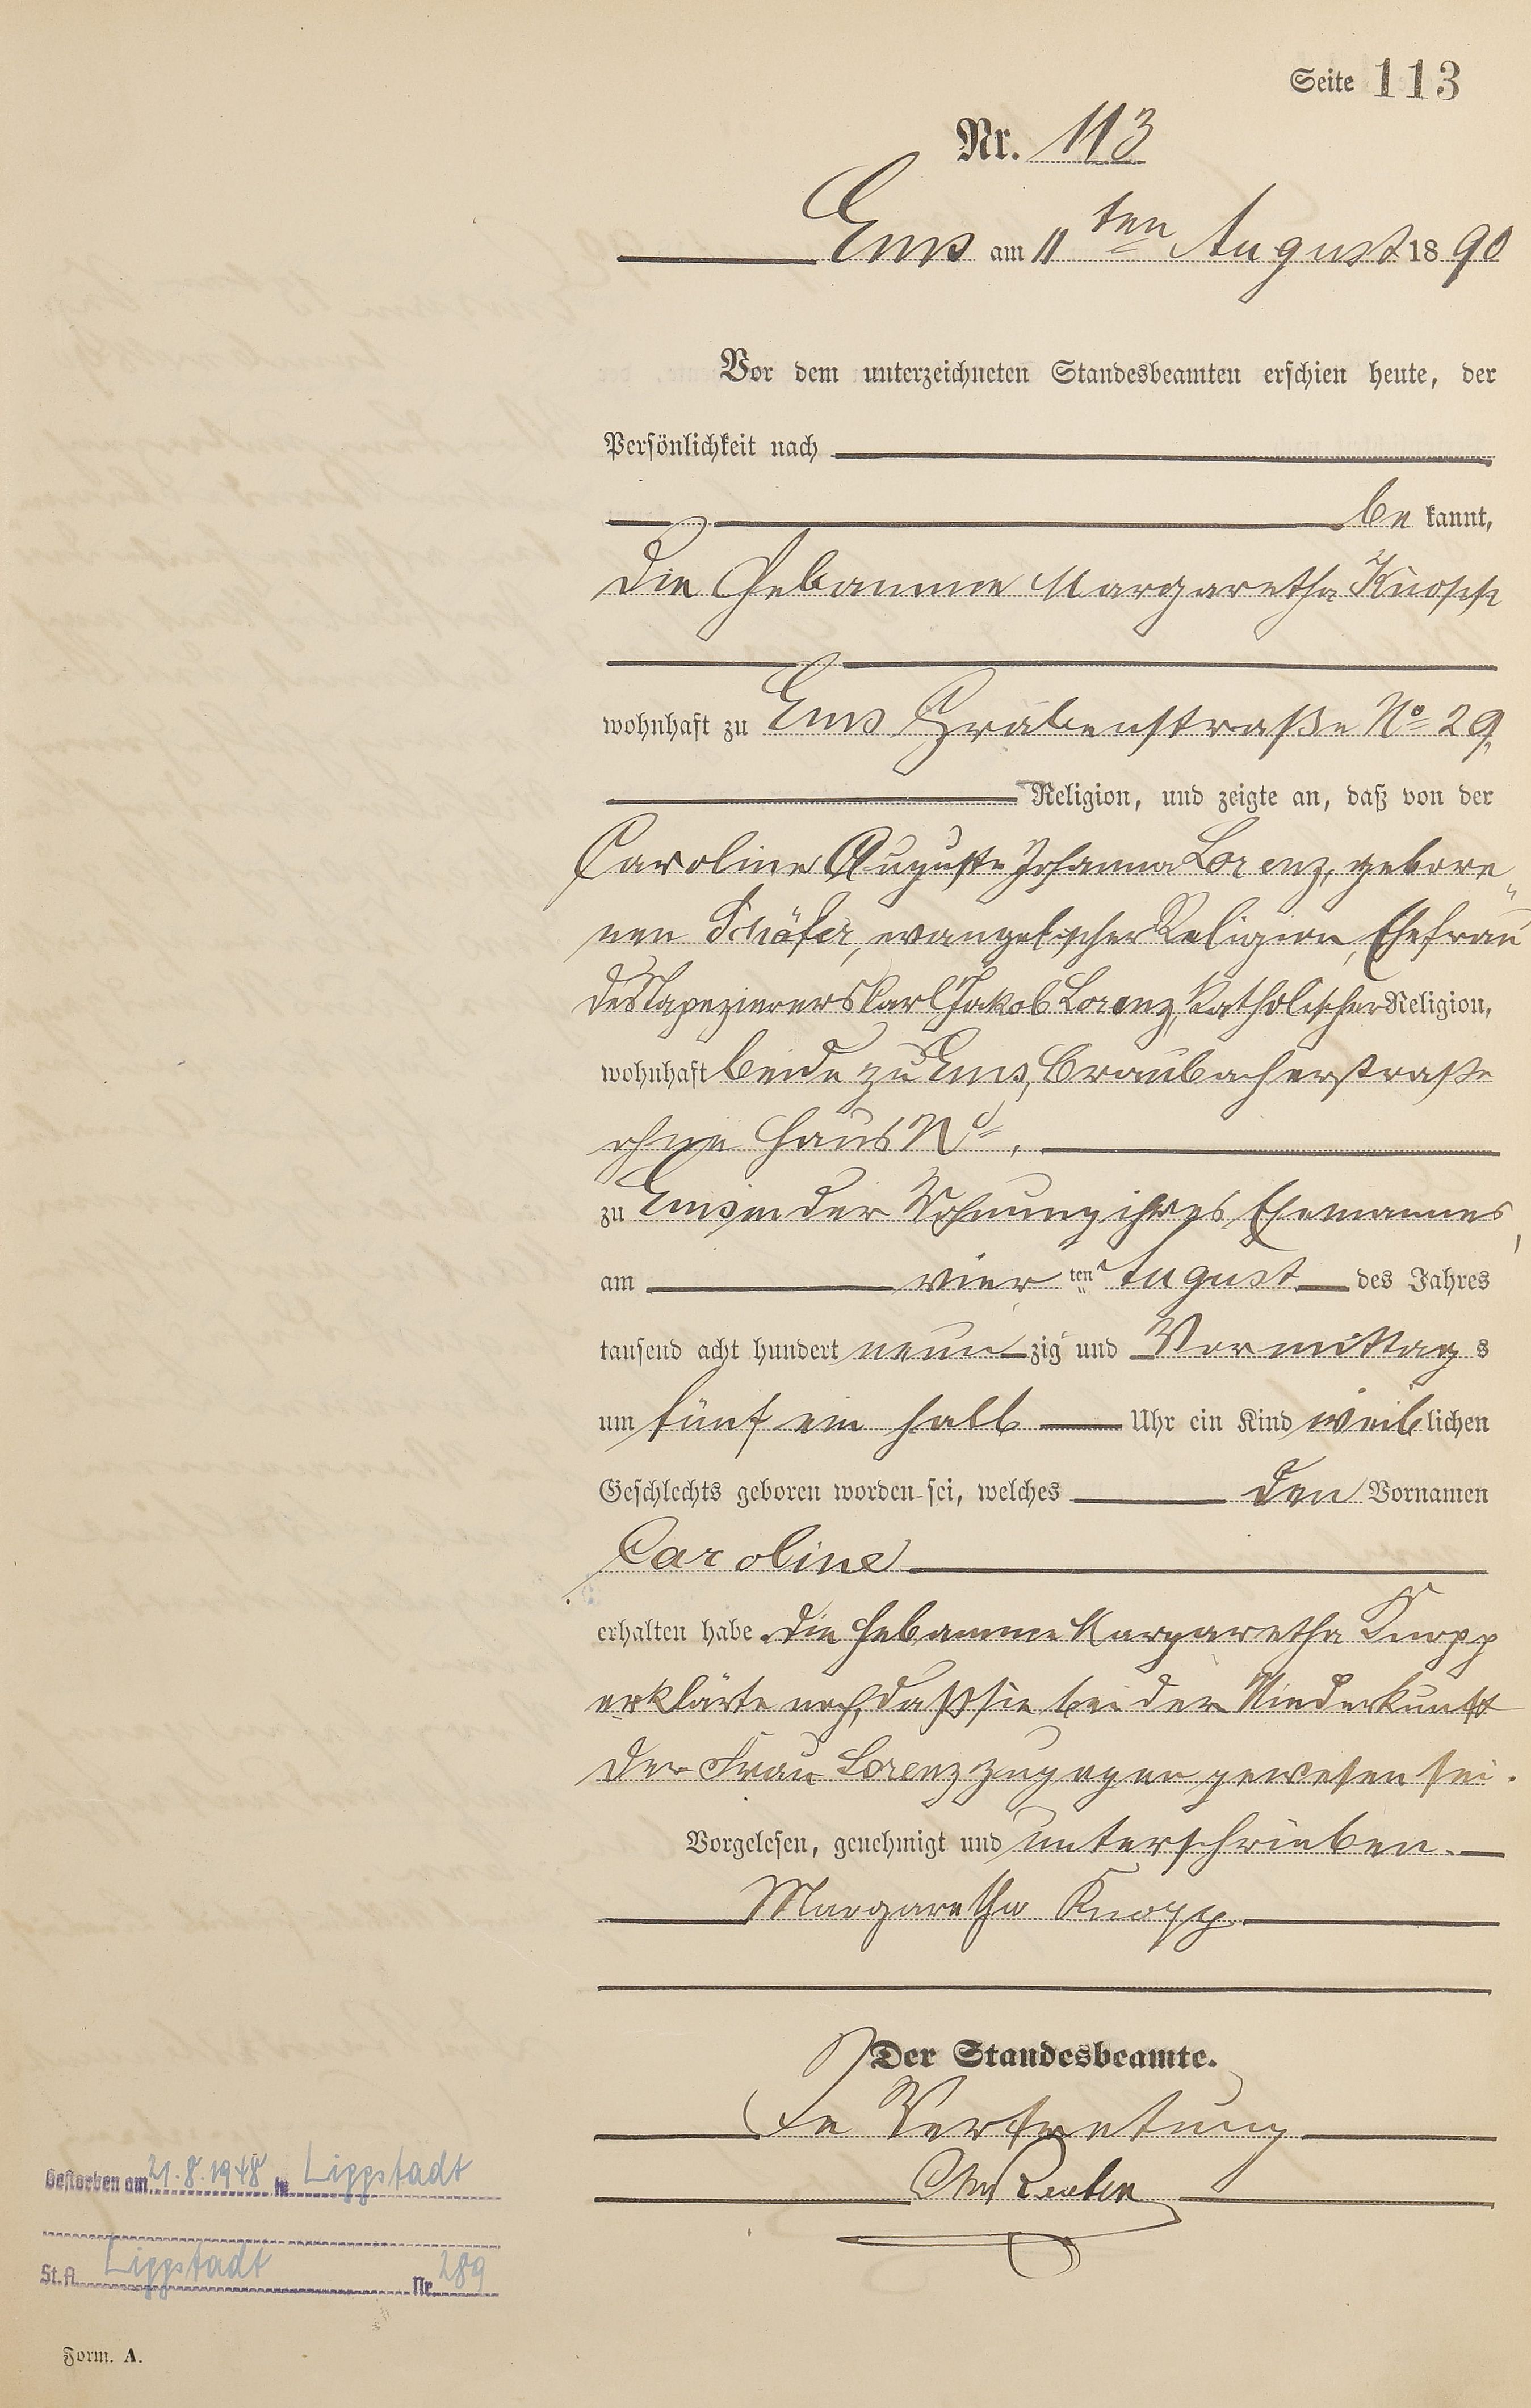 Seite 113
Nr. 113
Ems am 11ten August 1890
Vor dem unterzeichneten Standesbeamten erschien heute, der
Persönlichkeit nach
be kannt,
die Hebamme Margaretha Knopp
wohnhaft zu Ems Grabenstraße No 29,
Religion, und zeigte an, daß von der
Caroline Auguste Johanna Lorenz, gebore„
nen Schäfer, evangelischer Religion, Ehefrau
des Tapezierers Carl Jakob Lorenz, katholischer Religion,
wohnhaft beide zu Ems, Braubacherstraße
ohne Haus No,
zu Ems in der Wohnung ihres Ehemannes,
am vier ten August des Jahres
tausend acht hundert neun zig und Vormittag s
um fünf ein halb Uhr ein Kind weib lichen
Geschlechts geboren worden sei, welches den Vornamen
Caroline
erhalten habe. Die Hebamme Margaretha Knopp
erklärte noch, daß sie bei der Niederkunft
der Frau Lorenz zugegen gewesen sei.
Vorgelesen, genehmigt und unterschrieben.
Margaretha Knopp
Der Standesbeamte.
In Vertretung
Gestorben am 21.8.1948 in Lippstadt
St.A. Lippstadt Nr. 289
Form. A.